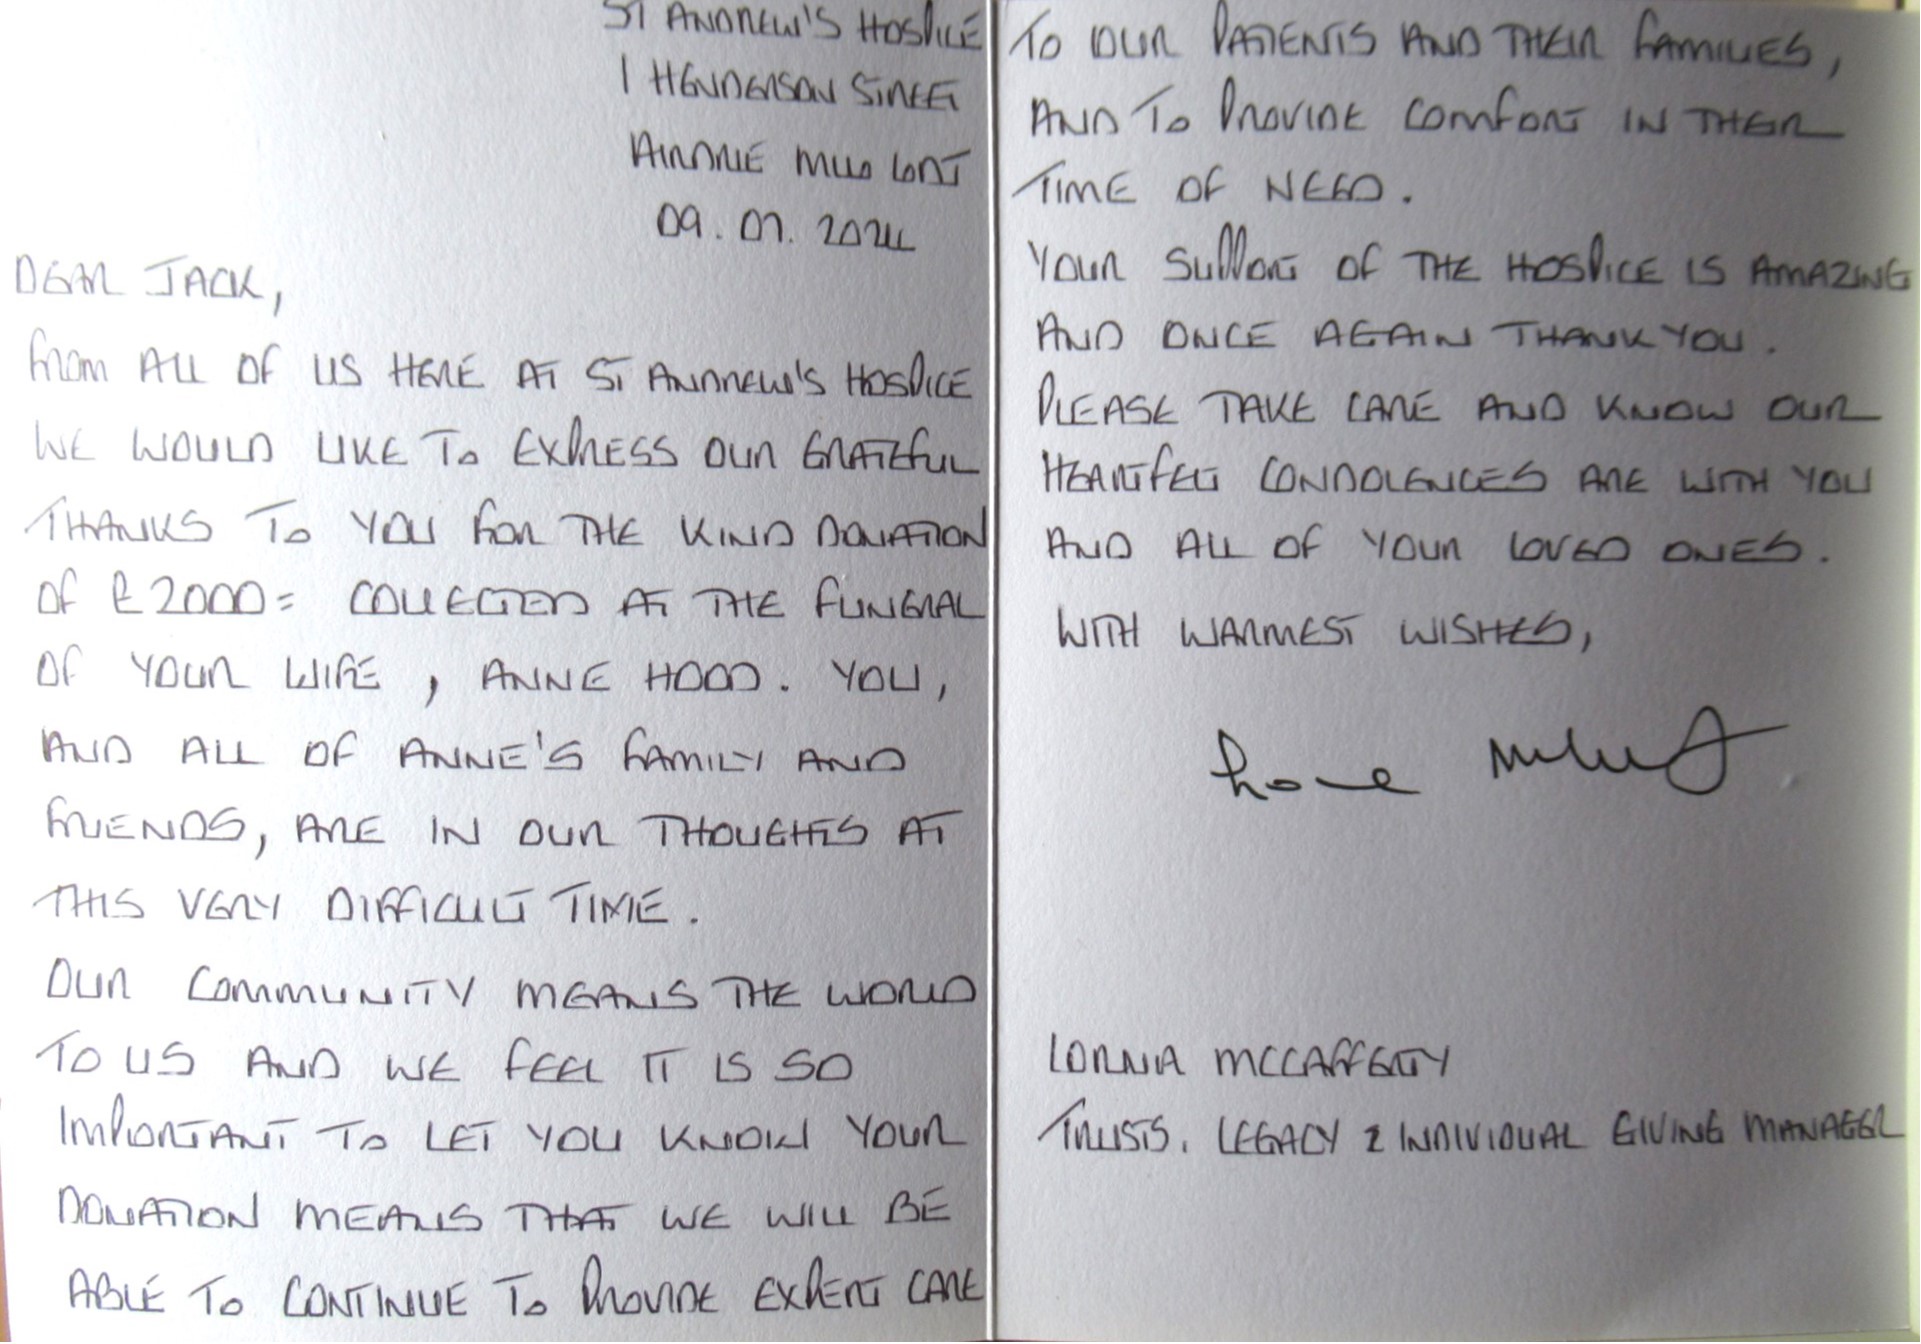 ST ANDREW'S HOSPICE
1 HENDERSON STREET
AIRDRIE ML6 6DJ
09.07.2024
DEAR JACK,
FROM ALL OF US HERE AT ST ANDREW'S HOSPICE
WE WOULD LIKE TO EXPRESS OUR GRATEFUL
THANKS TO YOU FOR THE KIND DONATION
OF £2000= COLLECTED AT THE FUNERAL
OF YOUR WIFE, ANNE HOOD. YOU,
AND ALL OF ANNE'S FAMILY AND
FRIENDS, ARE IN OUR THOUGHTS AT
THIS VERY DIFFICULT TIME.
OUR COMMUNITY MEANS THE WORLD
TO US AND WE FEEL IT IS SO
IMPORTANT TO LET YOU KNOW YOUR
DONATION MEANS THAT WE WILL BE
ABLE TO CONTINUE TO PROVIDE EXPERT CARE
TO OUR PATIENTS AND THEIR FAMILIES,
AND TO PROVIDE COMFORT IN THEIR
TIME OF NEED.
YOUR SUPPORT OF THE HOSPICE IS AMAZING
AND ONCE AGAIN THANK YOU.
PLEASE TAKE CARE AND KNOW OUR
HEARTFELT CONDOLENCES ARE WITH YOU
AND ALL OF YOUR LOVED ONES.
WITH WARMEST WISHES,
LORNA MCCAFFERTY
TRUSTS, LEGACY & INDIVIDUAL GIVING MANAGER